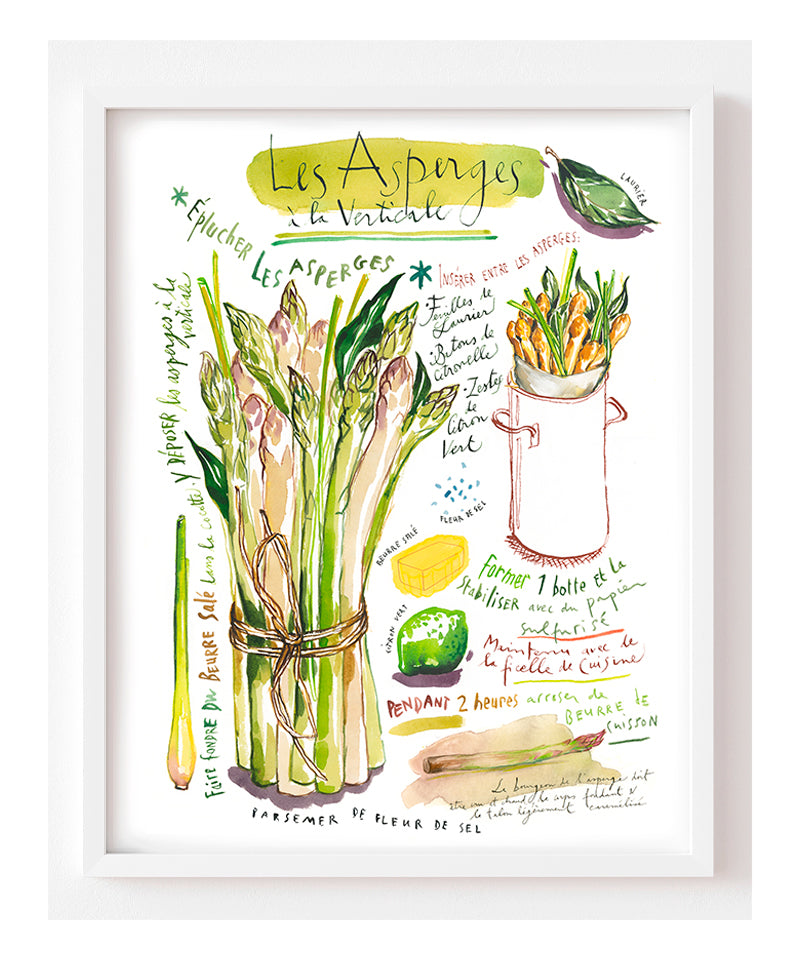 Les Asperges
à la Verticale
LAURIER
* Éplucher LES ASPERGES
* INSÉRER ENTRE LES ASPERGES:
• Feuilles de
Laurier
• Batons de
citronelle
• Zestes
de
Citron
Vert
FLEUR DE SEL
BEURRE SALÉ
CITRON VERT
Faire fondre DU BEURRE Salé dans la cocotte. Y DÉPOSER les asperges à la
verticale
Former 1 botte et la
Stabiliser avec du papier
sulfurisé
Maintenu avec de
la ficelle de Cuisine
PENDANT 2 heures arroser de
BEURRE DE
CUISSON
Le bourgeon de l'asperge doit
être cru et chaud, le corps fondant &
le talon légèrement caramélisé
PARSEMER DE FLEUR DE SEL